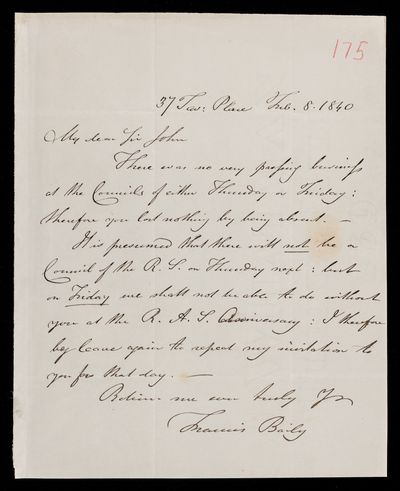 175
37 Tav: Place Feb. 8. 1840
My dear Sir John
There was no very pressing business
at the Councils of either Thursday or Friday:
therefore you lost nothing by being absent. —
It is presumed that there will not be a
Council of the R. S. on Thursday next: but
on Friday we shall not be able to do without
you at the R. A. S. Anniversary: I therefore
beg leave again to repeat my invitation to
you for that day. —
Believe me ever truly Yrs
Francis Baily